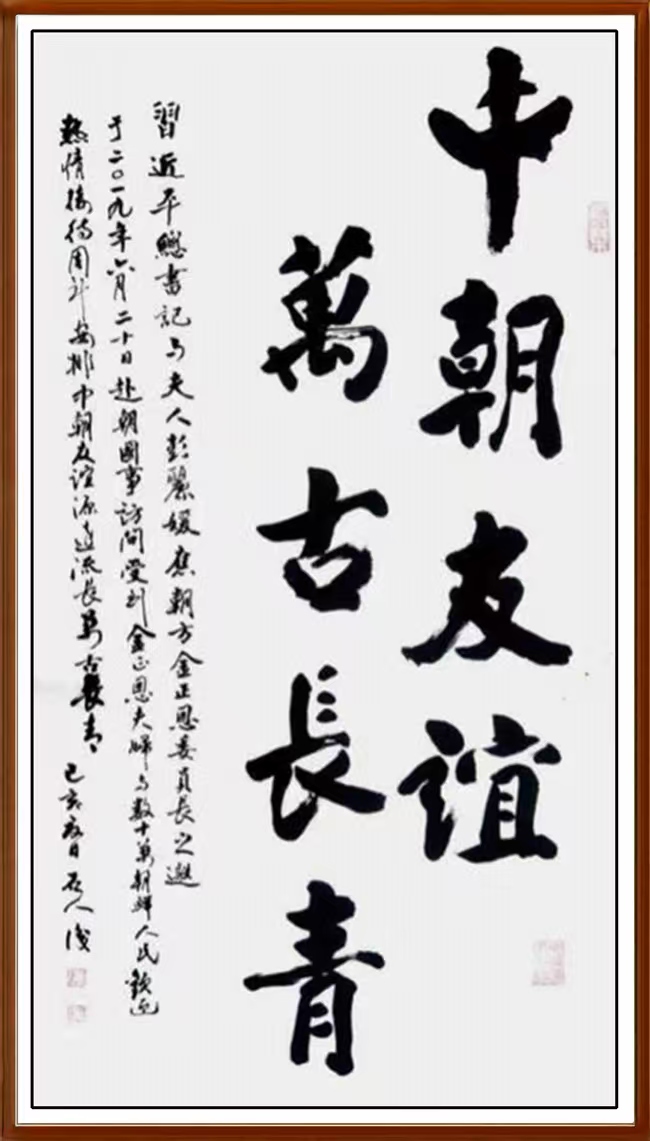 中朝友谊
萬古長青
習近平總書記与夫人彭麗媛應朝方金正恩委員長之邀
于二〇一九年六月二十日赴朝國事訪问受到金正恩夫婦与数十萬朝鲜人民歡迎
熱情接待周到安排中朝友谊源遠流長萬古長青 己亥 石人